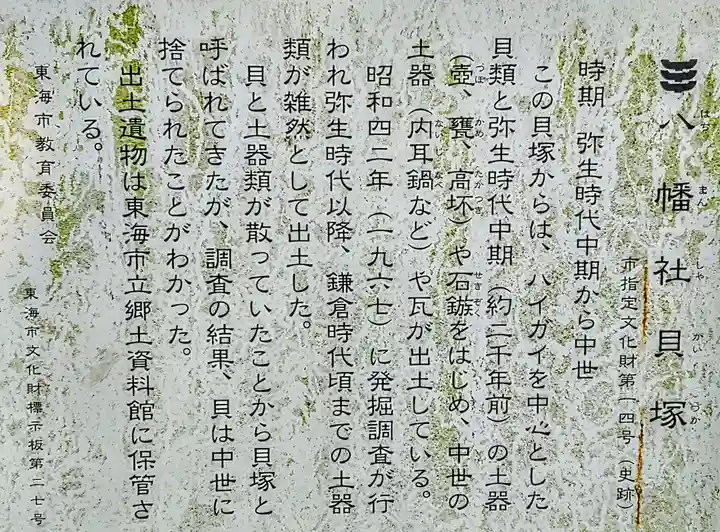 八幡社貝塚
はちまんしゃかいづか
市指定文化財第一四号（史跡）
時期　弥生時代中期から中世
この貝塚からは、ハイガイを中心とした
貝類と弥生時代中期（約二千年前）の土器
（壺、甕、高坏）や石鏃をはじめ、中世の
つぼ　かめ　たかつき　せきぞく
土器（内耳鍋など）や瓦が出土している。
ないじなべ
昭和四二年（一九六七）に発掘調査が行
われ弥生時代以降、鎌倉時代頃までの土器
類が雑然として出土した。
貝と土器類が散っていたことから貝塚と
呼ばれてきたが、調査の結果、貝は中世に
捨てられたことがわかった。
出土遺物は東海市立郷土資料館に保管さ
れている。
東海市教育委員会
東海市文化財標示板第二七号